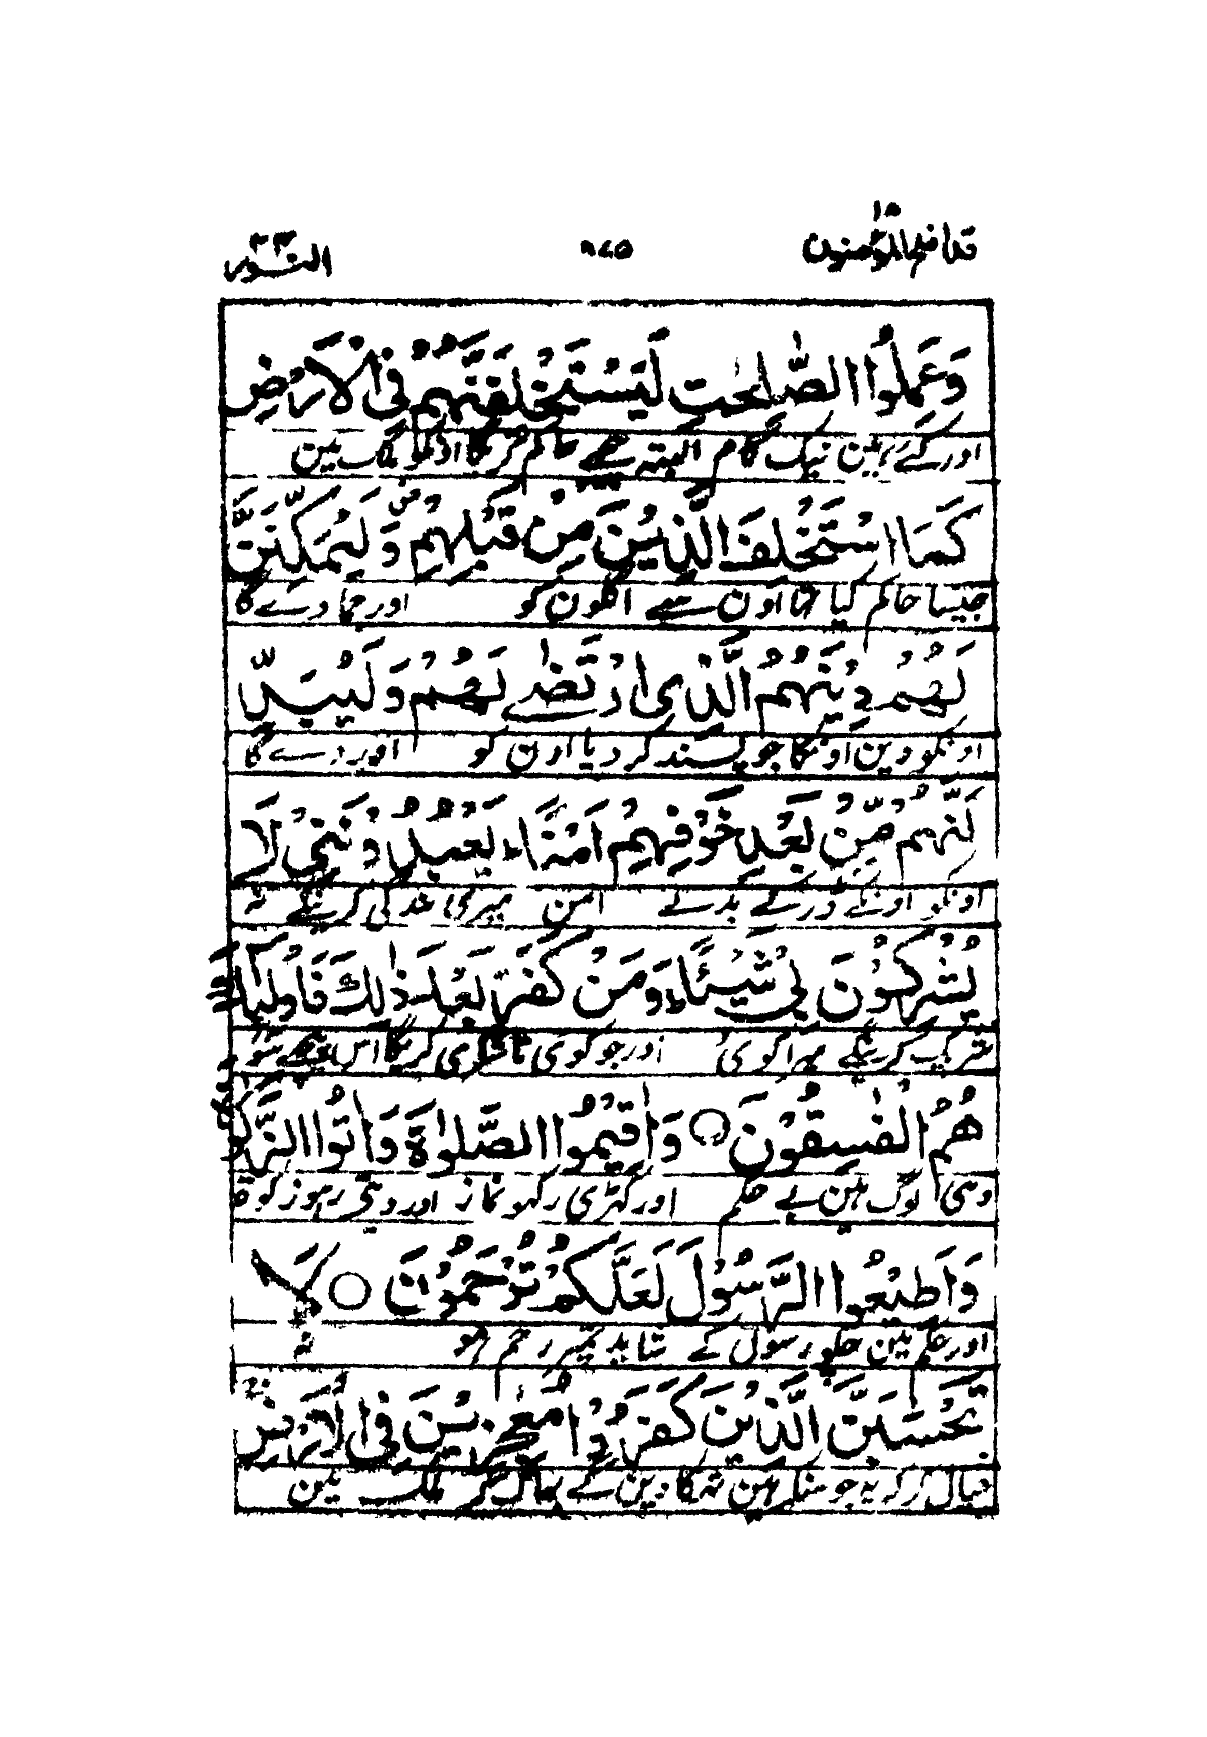 قد افلح المؤمنون ١٨
٥٧٩
النّور ٢٤
وَعَمِلُوا الصّٰلِحٰتِ لَيَسْتَخْلِفَنَّهُمْ فِي الْاَرْضِ
اور کئے ہین نیک کام البتہ پیچھے حاکم کریگا اونکو ملک مین
كَمَا اسْتَخْلَفَ الَّذِيْنَ مِنْ قَبْلِهِمْ وَلَيُمَكِّنَنَّ
جیسا حاکم کیا تھا اون سے اگلون کو اور جما دے گا
لَهُمْ دِيْنَهُمُ الَّذِي ارْتَضٰى لَهُمْ وَلَيُبَدِّ
اونکو دین اونکا جو پسند کر دیا اون کو اور دے گا
لَنَّهُمْ مِّنْۢ بَعْدِ خَوْفِهِمْ اَمْنًا يَعْبُدُوْنَنِيْ لَا
اونکو اونکے ڈر کے بدلے امن میری بندگی کرینگے نہ
يُشْرِكُوْنَ بِيْ شَيْئًا وَمَنْ كَفَرَ بَعْدَ ذٰلِكَ فَاُولٰٓئِكَ
شریک کرینگے میرا کوئی اور جو کوئی ناشکری کریگا اس پیچھے سو
هُمُ الْفٰسِقُوْنَ ○ وَاَقِيْمُوا الصَّلٰوةَ وَاٰتُوا الزَّكٰوةَ
وہی لوگ ہین بے حکم اور کھڑی رکھو نماز اور دیتے رہو زکوة
وَاَطِيْعُوا الرَّسُوْلَ لَعَلَّكُمْ تُرْحَمُوْنَ ○ لَا
اور حکم مین چلو رسول کے شاید تمپر رحم ہو نہ
تَحْسَبَنَّ الَّذِيْنَ كَفَرُوْا مُعْجِزِيْنَ فِي الْاَرْضِ
خیال کر کہ یہ جو منکر ہین تھکا دین گے بھاگ کر ملک مین